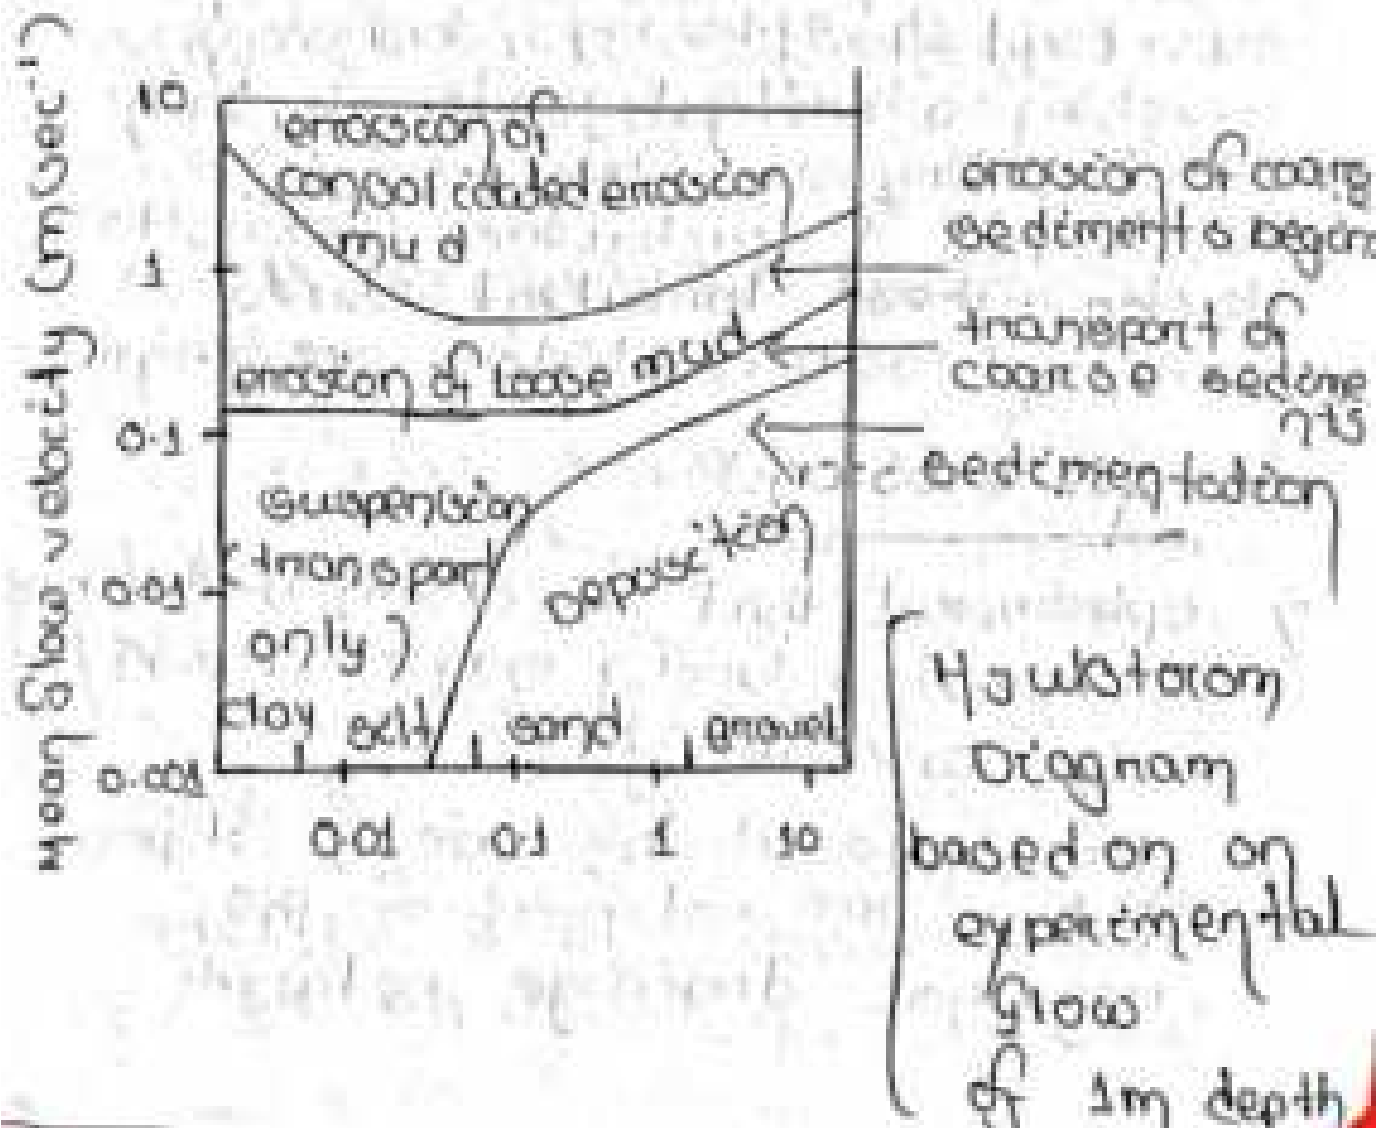 Mean flow velocity (m sec⁻¹)
10
1
0.1
0.01
0.001
errosion of
consolidated errosion
mud
errosion of loose mud
suspension
(transport
only)
Deposition
clay silt sand gravel
0.01 0.1 1 10
errosion of coars
sediments begins
transport of
coarse sedime
nts
sedimentation
Hjulstorom
Diagnam
based on on
experimental
flow
of 1m depth